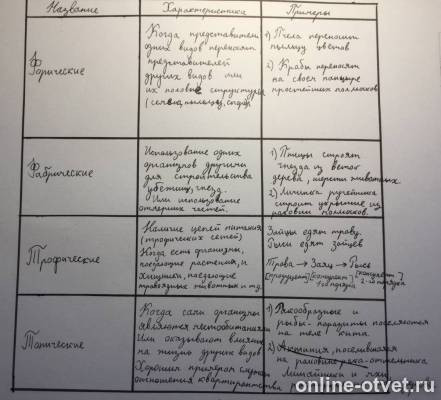 Название
Характеристика
Примеры
Форические
Когда представители
одних видов переносят
представителей
других видов или
их половые структуры
(семена, пыльцу, споры
1) Пчела переносит
пыльцу цветов
2) Крабы переносят
на своем панцире
простейших
Фабрические
Использование одних
организмов другими
для строительства
убежищ, гнезд.
Или использование
отмерших частей.
1) Птицы строят
гнезда из веток
дерева, шерсти животных.
2) Личинка ручейника
строит укрытие из
раковин моллюсков.
Трофические
Наличие цепей питания
(трофических сетей)
Когда есть организмы,
поедающие растения, и
хищники, поедающие
травоядных животных и т.д.
Зайцы едят траву,
Рыси едят зайцев
Трава → Заяц → Рысь
[продуцент] [консумент 1-го порядка] [консумент 2-го порядка]
Топические
Когда сами организмы
являются местообитанием
Или оказывают влияние
на жизнь других видов
Хорошим примером служат
отношения квартирантства
1) Ракообразные и
рыбы-паразиты поселяются
на теле кита
2) Актиния, поселившаяся
на раковине рака-отшельника
Лишайники и мхи
online-otvet.ru